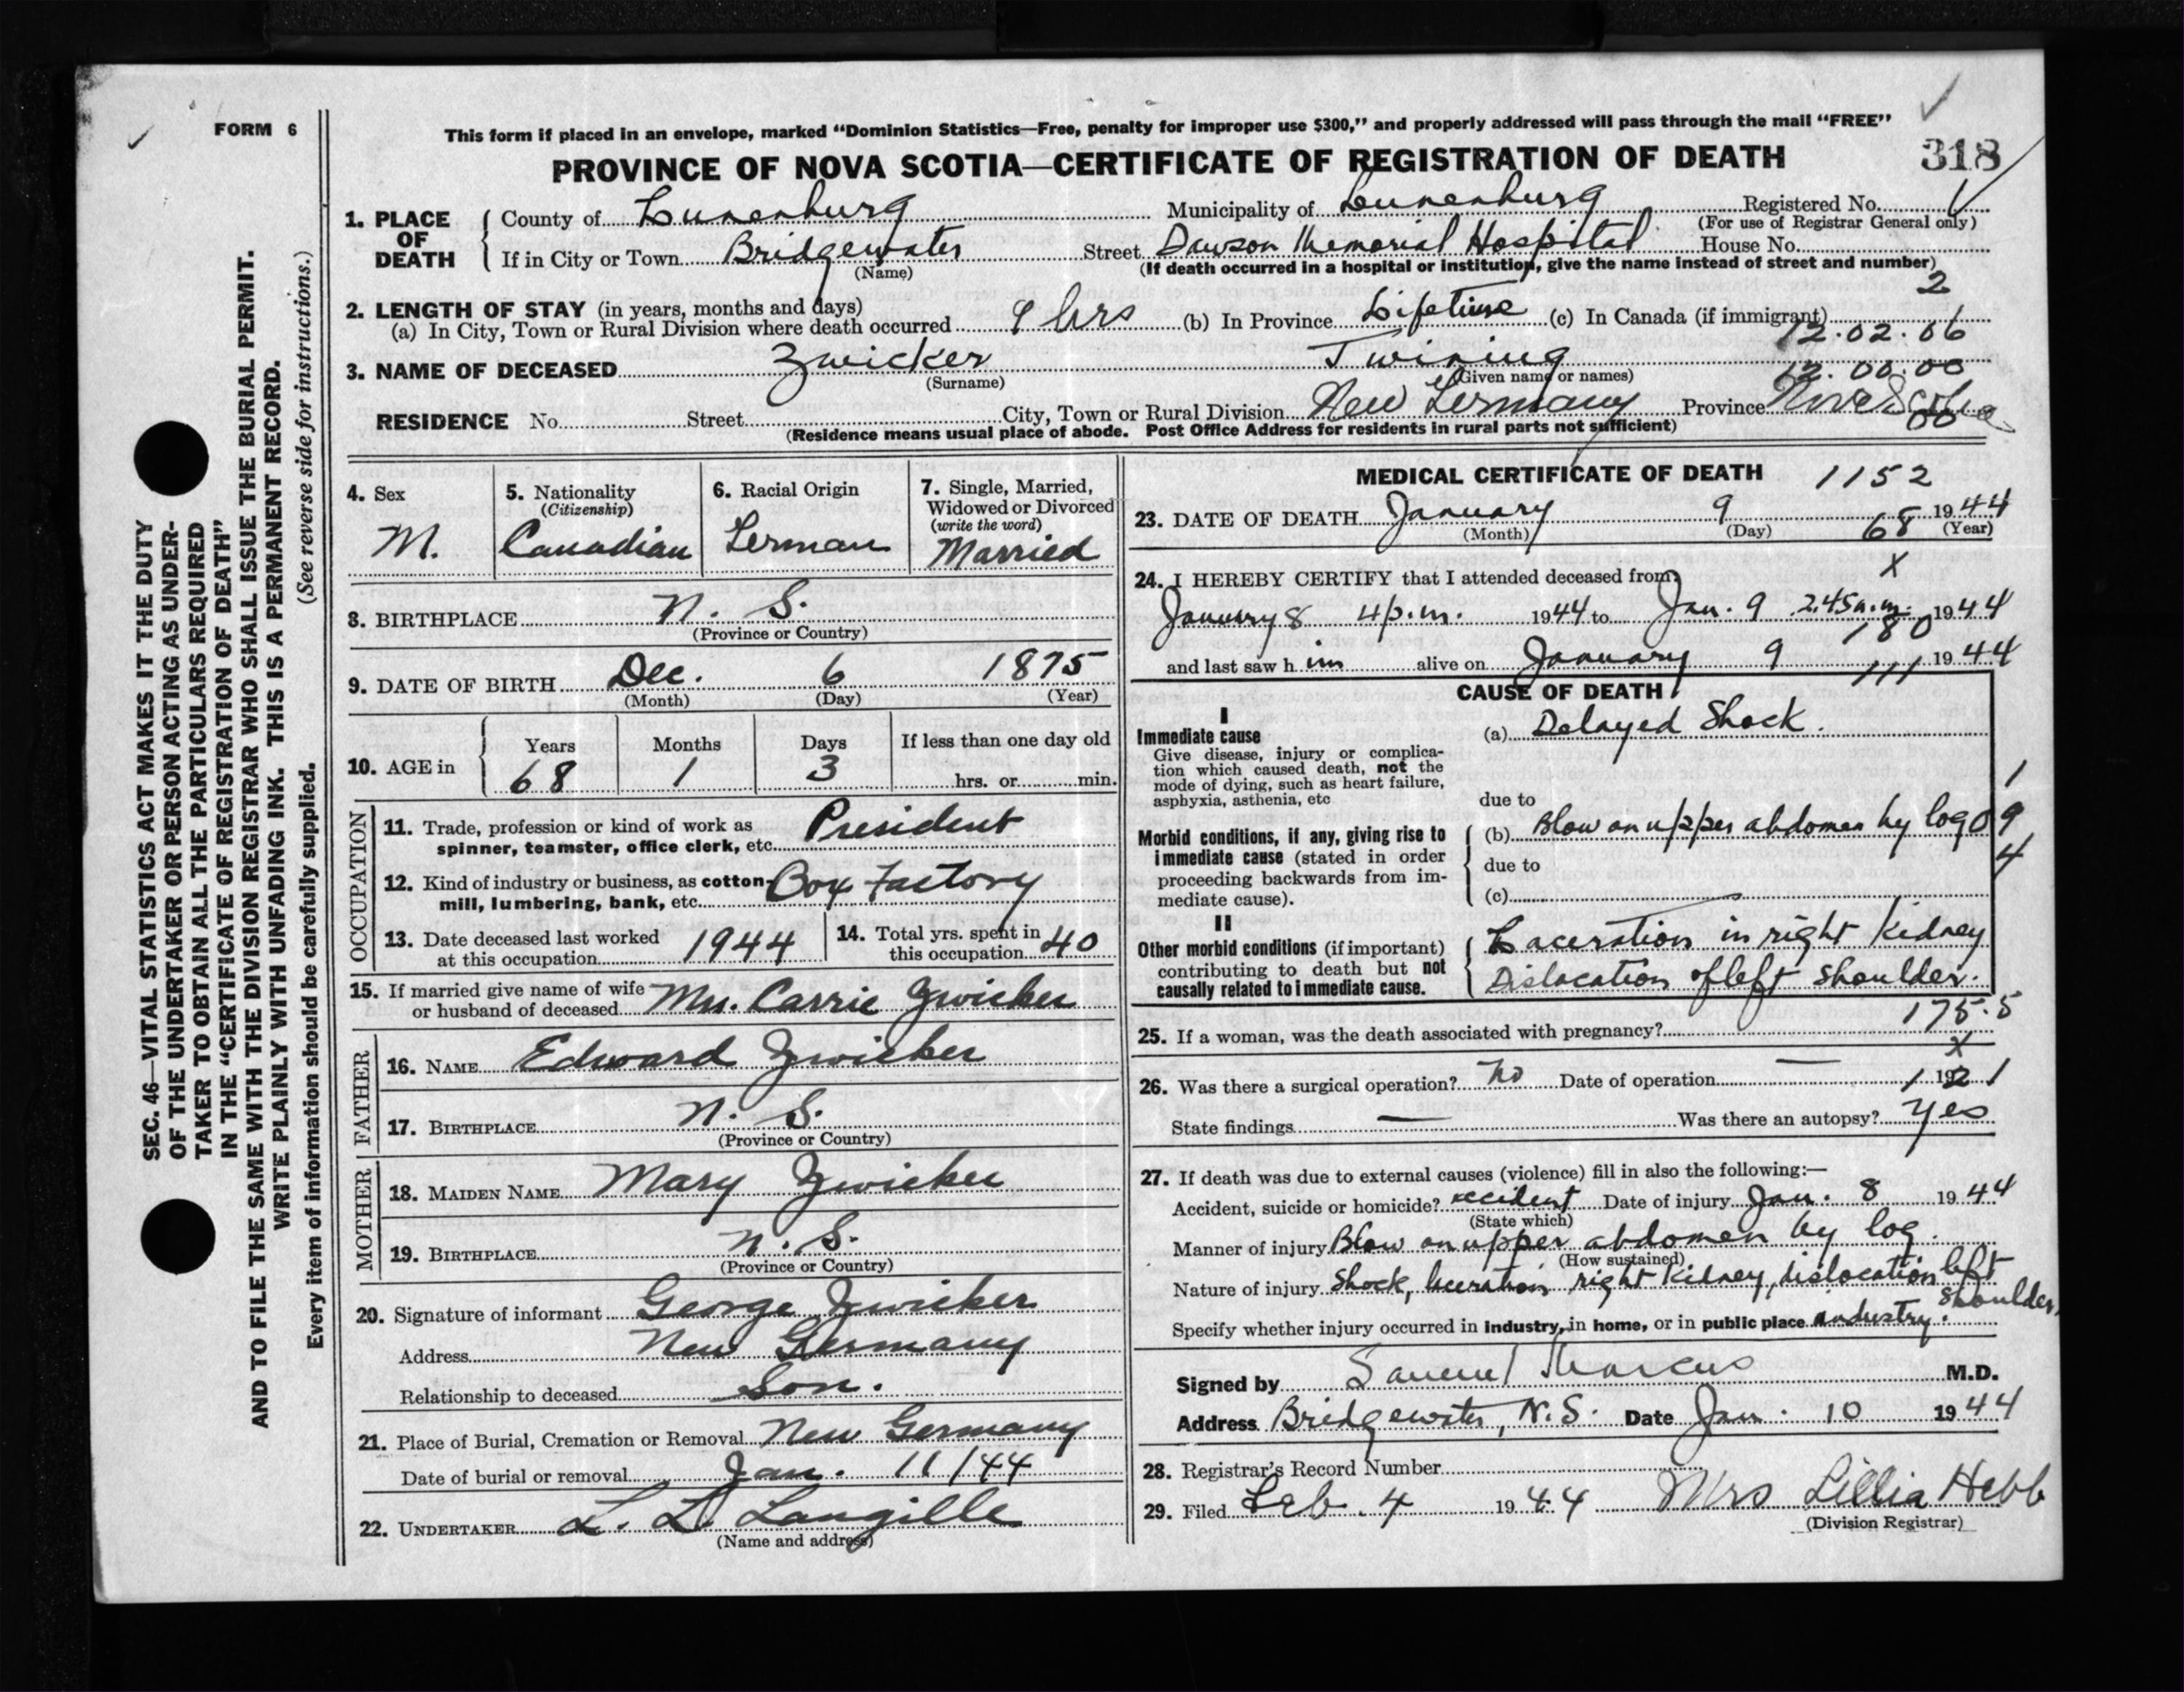 FORM 6
This form if placed in an envelope, marked "Dominion Statistics—Free, penalty for improper use $300," and properly addressed will pass through the mail "FREE"
PROVINCE OF NOVA SCOTIA—CERTIFICATE OF REGISTRATION OF DEATH
318
SEC. 46—VITAL STATISTICS ACT MAKES IT THE DUTY
OF THE UNDERTAKER OR PERSON ACTING AS UNDER-
TAKER TO OBTAIN ALL THE PARTICULARS REQUIRED
IN THE "CERTIFICATE OF REGISTRATION OF DEATH"
AND TO FILE THE SAME WITH THE DIVISION REGISTRAR WHO SHALL ISSUE THE BURIAL PERMIT.
WRITE PLAINLY WITH UNFADING INK. THIS IS A PERMANENT RECORD.
Every item of information should be carefully supplied. (See reverse side for instructions.)
1. PLACE OF DEATH County of Lunenburg Municipality of Lunenburg Registered No.
(For use of Registrar General only)
If in City or Town Bridgewater Street Dawson Memorial Hospital House No.
(Name) (If death occurred in a hospital or institution, give the name instead of street and number)
2
2. LENGTH OF STAY (in years, months and days)
(a) In City, Town or Rural Division where death occurred 9 hrs (b) In Province Lifetime (c) In Canada (if immigrant)
12.02.06
3. NAME OF DECEASED Zwicker Twining
(Surname) (Given name or names)
12.00.00
RESIDENCE No. Street City, Town or Rural Division New Germany Province Nova Scotia
00
(Residence means usual place of abode. Post Office Address for residents in rural parts not sufficient)
4. Sex M.
5. Nationality (Citizenship) Canadian
6. Racial Origin German
7. Single, Married, Widowed or Divorced (write the word) Married
8. BIRTHPLACE N. S.
(Province or Country)
9. DATE OF BIRTH Dec. 6 1875
(Month) (Day) (Year)
10. AGE in Years 68 Months 1 Days 3 If less than one day old hrs. or min.
OCCUPATION
11. Trade, profession or kind of work as President
spinner, teamster, office clerk, etc.
12. Kind of industry or business, as cotton- Box Factory
mill, lumbering, bank, etc.
13. Date deceased last worked at this occupation 1944
14. Total yrs. spent in this occupation 40
15. If married give name of wife or husband of deceased Mrs. Carrie Zwicker
FATHER
16. NAME Edward Zwicker
17. BIRTHPLACE N. S.
(Province or Country)
MOTHER
18. MAIDEN NAME Mary Zwicker
19. BIRTHPLACE N. S.
(Province or Country)
20. Signature of informant George Zwicker
Address New Germany
Relationship to deceased Son.
21. Place of Burial, Cremation or Removal New Germany
Date of burial or removal Jan. 11/44
22. UNDERTAKER L. L. Langille
(Name and address)
MEDICAL CERTIFICATE OF DEATH 1152
23. DATE OF DEATH January 9 1944
(Month) (Day) (Year)
68
X
24. I HEREBY CERTIFY that I attended deceased from
January 8 4 p.m. 1944 to Jan. 9 2.45 a.m. 1944
180
and last saw h im alive on January 9 1944
111
CAUSE OF DEATH
I
Immediate cause
Give disease, injury or complica-
tion which caused death, not the
mode of dying, such as heart failure,
asphyxia, asthenia, etc
(a) Delayed Shock.
due to
Morbid conditions, if any, giving rise to
immediate cause (stated in order
proceeding backwards from im-
mediate cause).
(b) Blow on upper abdomen by log
due to
(c)
1
0 9
4
II
Other morbid conditions (if important)
contributing to death but not
causally related to immediate cause.
Laceration in right Kidney
Dislocation of left shoulder.
175.5
25. If a woman, was the death associated with pregnancy?
X
26. Was there a surgical operation? No Date of operation — 19
121
State findings — Was there an autopsy? Yes
27. If death was due to external causes (violence) fill in also the following:—
Accident, suicide or homicide? accident Date of injury Jan. 8 1944
(State which)
Manner of injury Blow on upper abdomen by log.
(How sustained)
Nature of injury Shock, laceration right Kidney, dislocation left shoulder.
Specify whether injury occurred in industry, in home, or in public place industry.
Signed by Samuel Marcus M.D.
Address Bridgewater, N.S. Date Jan. 10 1944
28. Registrar's Record Number
29. Filed Feb. 4 1944 Mrs Lillia Hebb
(Division Registrar)